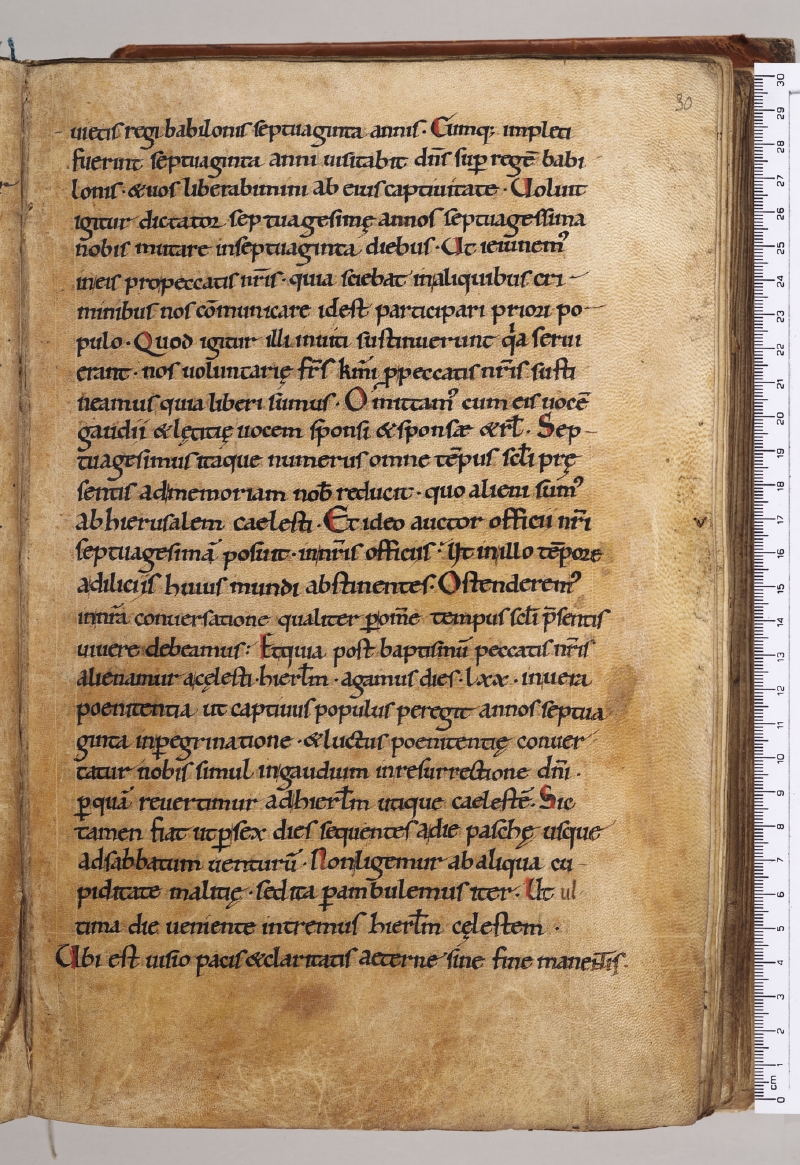 30
uietis regi babilonis septuaginta annis. Cumq; impleti
fuerint septuaginta anni uisitabit dn̄s sup̄ regē babi
lonis. & uos liberabimini ab eius captiuitate. Uoluit
igitur dictator septuagesimę annos septuagessima
nobis mutare inseptuaginta diebus. Ut ieiunem᾿
ineis propeccatis nr̄is. quia sciebat inaliquibus cri-
minibus nos cōmunicare idest participari priori po-
pulo. Quod igitur illi inuiti sustinuerunt qa serui
erant. nos uoluntarię fr̄s km̄i ꝓpeccatis nr̄is susti
neamus quia liberi sumus. Omittam᾿ cum eis uocē
gaudii & lętitię uocem sponsi & sponsæ & rł. Sep-
tuagesimus itaque numerus omne tēpus scłi prę
sentis admemoriam nob̄ reducit. quo alieni sum᾿
abhierusalem caelesti. Et ideo auctor officii nr̄i
septuagesimā posuit. innr̄is officiis. Ut inillo tēpore
adiliciis huius mundi abstinentes. Ostenderem᾿
innr̄a conuersatione qualiter ꝑom̄e tempus scłi p̄sentis
uiuere debeamus: Etquia post baptismū peccatis nr̄is
alienamur acęlesti hierłm. agamus dies. lxx. inuera
poenitentia ut captiuus populus peregit annos septua
ginta inꝑegrinatione. & luctus poenitentię conuer
tatur nobis simul ingaudium inresurrectione dn̄i.
ꝑquā reuertimur adhierłm utique caelestē. Sic
tamen fiat utꝑsex dies sequentes adie paschę usque
adsabbatum uenturū. Nonligemur abaliqua cu-
piditate malitię. sed ita ꝑambulemus iter. Ut ul
tima die ueniente intremus hierłm cęlestem.
Ubi est uisio pacis & claritatis aeterne sine fine manentis.